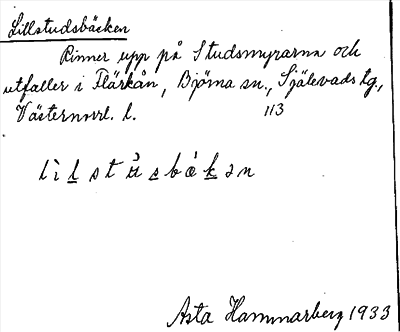 Lillstudsbäcken
Rinner upp på Studsmyrarna och
utfaller i Flärkån, Björna sn., Själevads tg.,
Västernorrl. l. 113
Asta Hammarberg 1933